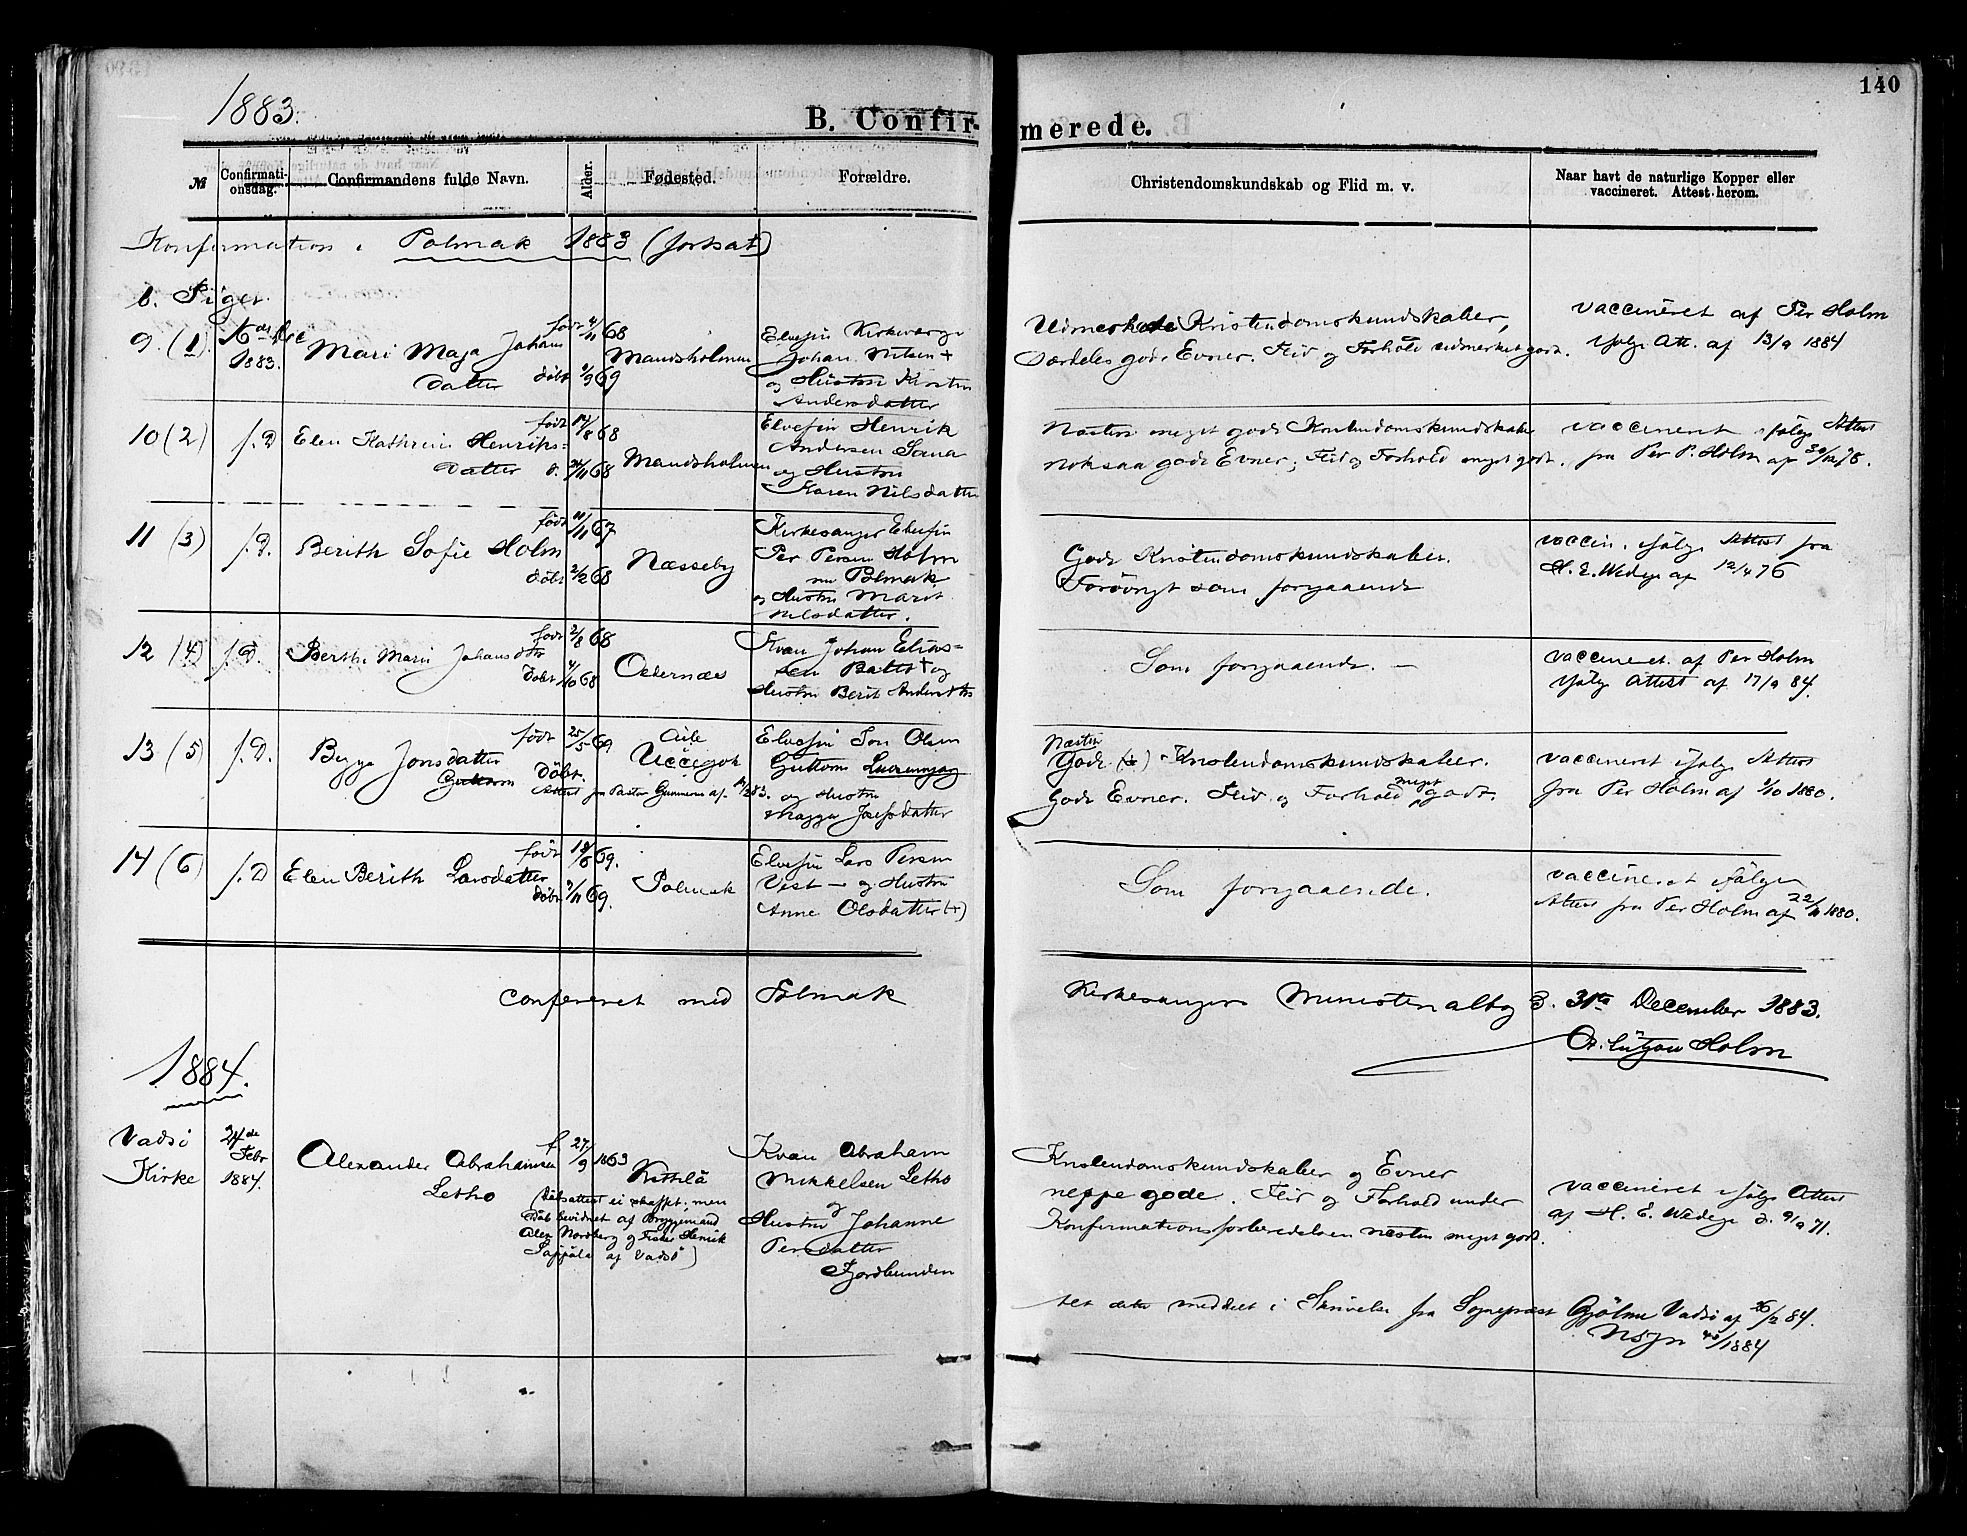 140
1883.
B. Confirmerede.
№ Confirmationsdag. Confirmandens fulde Navn. Alder. Fødested. Forældre. Christendomskundskab og Flid m. v. Naar havt de naturlige Kopper eller vaccineret. Attest herom.
Konfirmation i Polmak 1883 (fortsat)
b. Piger
9 (1)
1883.
Mari Maja Johans
datter
født 68
døbt 69
Mandsholmen
Elvefin Kirkeværge
Johan Nilsen +
og Hustru Kirsten
Andersdatter
Kristendomskundskaber,
Særdeles gode Evner. Flid og Forhold udmerket godt.
vaccineret af Per Holm
ifølge Att. af 13/9 1884
10 (2)
f. D
Elen Kathrin Henriks-
datter
født 68
d. 68
Mandsholmen
Elvefin Henrik
Andersen
og Hustru
Karen Nilsdatter
Næsten meget gode Kristendomskundskaber
noksaa gode Evner, Flid og Forhold meget godt.
vaccineret ifølge Attest
fra Per P. Holm af
11 (3)
f. D.
Berith Sofie Holm
født 67
døbt 2/2 68
Næsseby
Kirkesanger Elvefin
Per Persen Holm
nu Polmak
og Hustru Marit
Nilsdatter.
Gode Kristendomskundskaber.
Forøvrigt som forgaaende
vaccin. ifølge Attest fra
H. E. Wedege af 12/4 76
12 (4)
f. D.
Berith Marie Johansdtr
født 2/8 68
døbt 4/10 68
Kvæn Johan Elias-
sen + og
Hustru Berit Andersdtr
Som forgaaende. —
vaccineret af Per Holm
ifølge Attest af 17/9 84.
13 (5)
f. D.
Bigga Jonsdatter
Guttorm
født 25/5 69
Døbt.
Attest fra Pastor Gunnerus af
Elvefin Jon Olsen
Guttorm
og Hustru
Magga Josefsdatter
Næsten
Gode Kristendomskundskaber.
gode Evner. Flid og Forhold meget godt.
vaccineret ifølge Attest
fra Per Holm af 1/10 1880.
14 (6)
f. D
Elen Berith Larsdatter
født 69.
døbt 69.
Polmak
Elvefin Lars Persen
Vest — og Hustru
Anne Olsdatter (+)
Som forgaaende.
vaccineret ifølge
Attest fra Per Holm af 22/11 1880.
Confereret med Polmak Kirkesangers Ministerialbog 3. 31te December 1883.
Holm
1884.
Vadsø
Kirke
24de
Febr
1884.
Alexander Abrahamsen
Letho
f 27/9 1863
Kittilä
(Døbsattest ei skaffet, men
Døb bevidnet af Bryggemand
Alex Nordberg og Fisker Henrik
af Vadsø)
Kvæn Abraham
Mikkelsen Letho
og
Hustru Johanne
Persdatter
Fjordbunden
Kristendomskundskaber og Evner
neppe gode. Flid og Forhold under
Konfirmationsforberedelsen næsten meget godt.
vaccineret ifølge Attest
af H. E. Wedege d. 9/9 71.
meddelt i Skrivelse fra Sogneprest Gjølme Vadsø af 26/2 84.
/1884